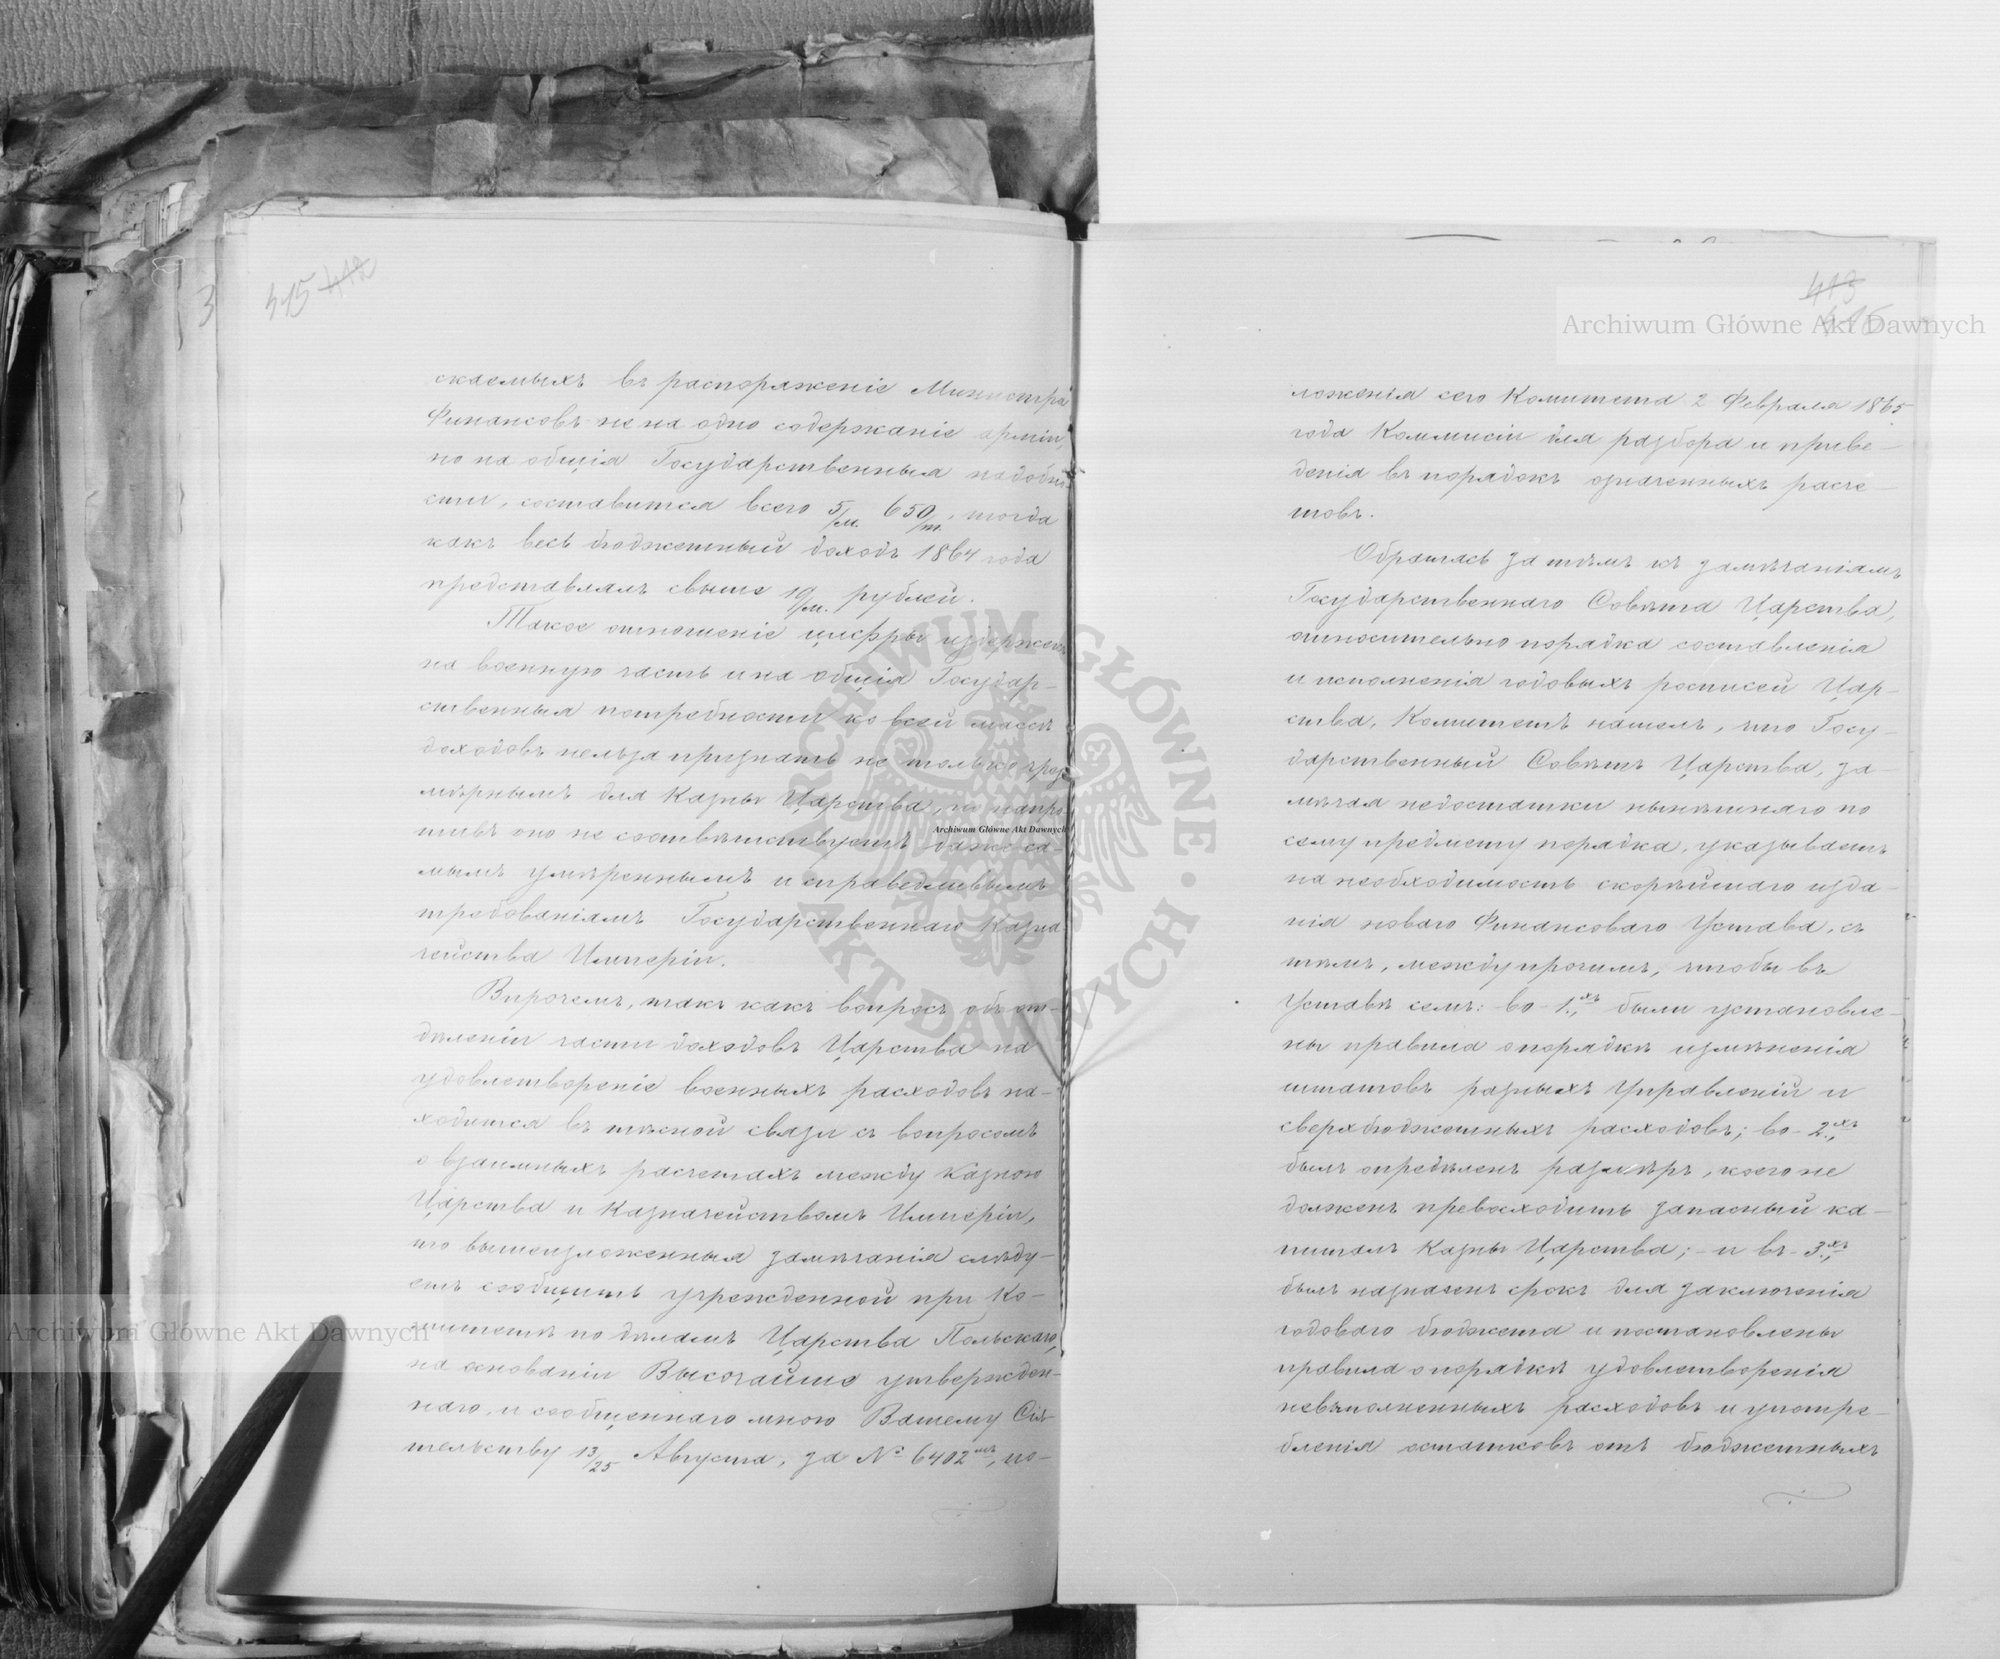 415 412
скаемыхъ въ распоряженіе Министра
Финансовъ не на одно содержаніе арміи,
но на общія Государственныя надобно-
сти, составится всего 5/м. 650/т., тогда
какъ весь бюджетный доходъ 1864 года
представлялъ свыше 19/м. рублей.
Такое отношеніе цифры издержекъ
на военную часть и на общія Государ-
ственныя потребности ко всей массѣ
доходовъ нельзя признать не только чрез-
мѣрнымъ для Казны Царства, но напро-
тивъ оно не соотвѣтствуетъ даже са-
мымъ умѣреннымъ и справедливымъ
требованіямъ Государственнаго Казна-
чейства Имперіи.
Впрочемъ, такъ какъ вопросъ объ от-
дѣленіи части доходовъ Царства на
удовлетвореніе военныхъ расходовъ на-
ходится въ тѣсной связи съ вопросомъ
о взаимныхъ расчетахъ между Казною
Царства и Казначействомъ Имперіи,
то вышеизложенныя замѣчанія слѣду-
етъ сообщить учрежденной при Ко-
митетѣ по дѣламъ Царства Польскаго,
на основаніи Высочайше утвержден-
наго, и сообщеннаго мною Вашему Сія-
тельству 13/25 Августа, за № 6402мъ, по-
413
416
ложенія сего Комитета 2 Февраля 1865
года Коммисіи для разбора и приве-
денія въ порядокъ означенныхъ расче-
товъ.
Обращаясь за тѣмъ къ замѣчаніямъ
Государственнаго Совѣта Царства,
относительно порядка составленія
и исполненія годовыхъ росписей Цар-
ства, Комитетъ нашелъ, что Госу-
дарственный Совѣтъ Царства, за-
мѣчая недостатки нынѣшняго по
сему предмету порядка, указываетъ
на необходимость скорѣйшаго изда-
нія новаго Финансоваго Устава, съ
тѣмъ, между прочимъ, чтобы въ
Уставѣ семъ: во-1.хъ были установле-
ны правила о порядкѣ измѣненія
штатовъ разныхъ Управленій и
сверхбюджетныхъ расходовъ; во-2.хъ
былъ опредѣленъ размѣръ, коего не
долженъ превосходить запасный ка-
питалъ Казны Царства; - и въ-3.хъ
былъ назначенъ срокъ для заключенія
годоваго бюджета и постановлены
правила о порядкѣ удовлетворенія
невыполненныхъ расходовъ и употре-
бленія остатковъ отъ бюджетныхъ
Archiwum Główne Akt Dawnych
Archiwum Główne Akt Dawnych
Archiwum Główne Akt Dawnych
ARCHIWUM GŁÓWNE · AKT DAWNYCH ·